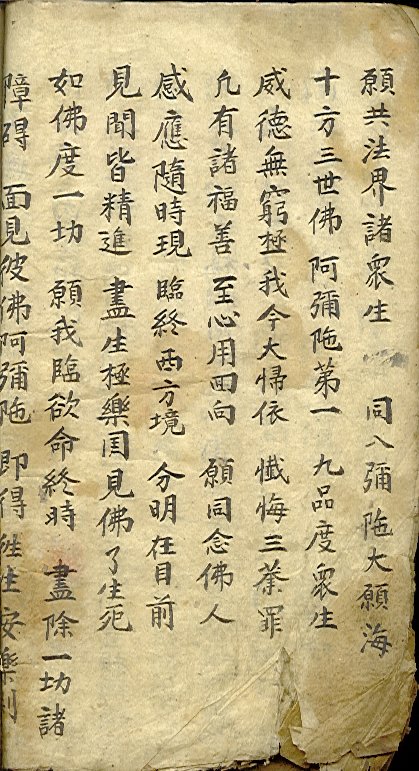 願共法界諸衆生 同入彌陁大願海
十方三世佛 阿彌陁第一 九品度衆生
威德無窮極我今大㱕依 懺悔三業罪
凢有諸福善 至心用回向 願同念佛人
感應隨時現 臨終西方境 分明在目前
見聞皆精進 盡生極樂国見佛了生死
如佛度一切 願我臨欲命終時 盡除一切諸
障碍 面見彼佛阿彌陁 即得徃生安樂刹